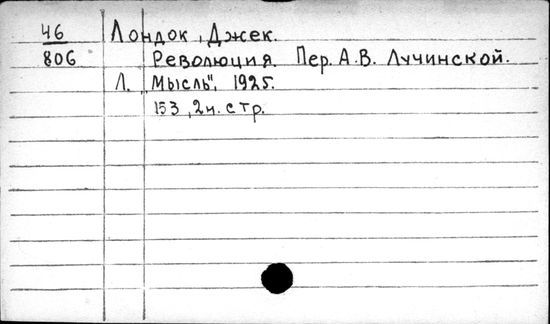 46 Лондок, Джек.
806 Революция. Пер. А.В. Лучинской.
Л. Мысль", 1925.
153, 2н. стр.